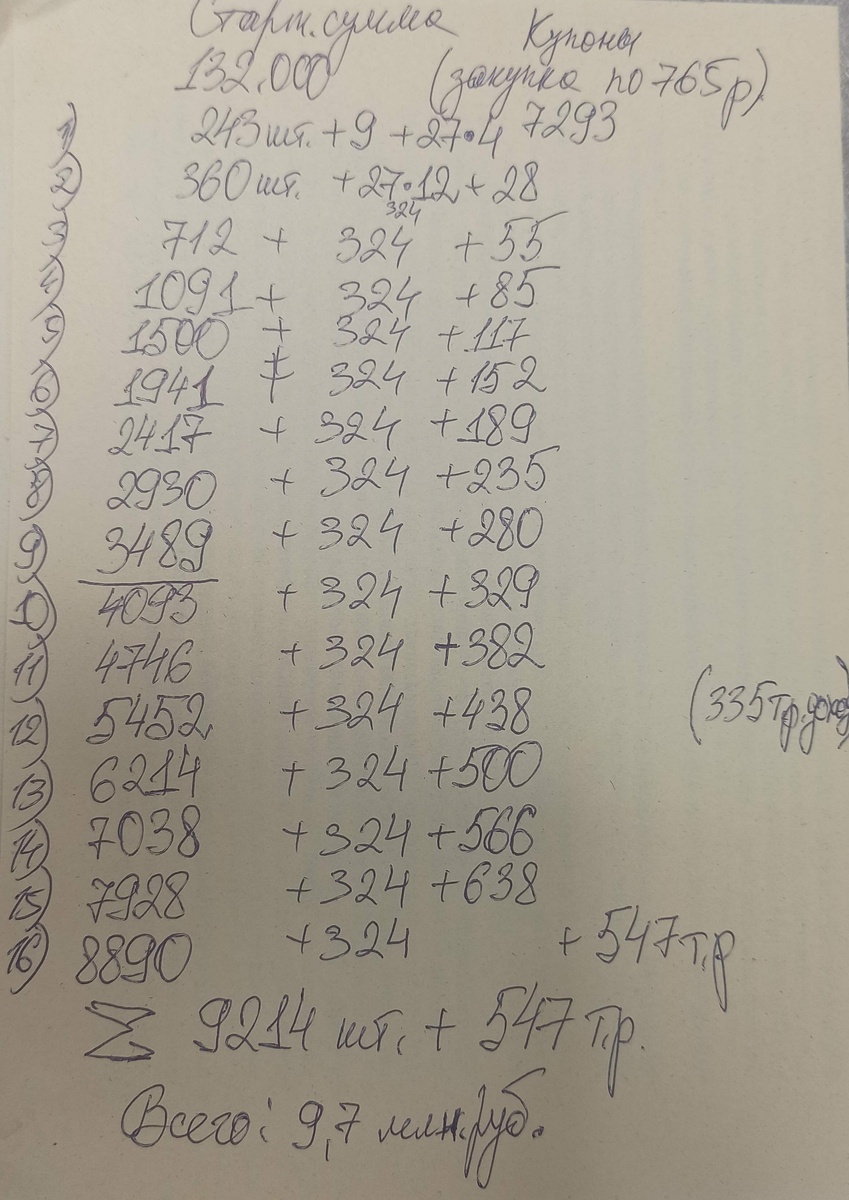 Старт. сумма Купоны
132.000 (закупка по 765р)
1) 243 шт. + 9 + 27•4 7293
2) 360 шт. + 27•12 + 28
324
3) 712 + 324 + 55
4) 1091 + 324 + 85
5) 1500 + 324 + 117
6) 1941 + 324 + 152
7) 2417 + 324 + 189
8) 2930 + 324 + 235
9) 3489 + 324 + 280
10) 4093 + 324 + 329
11) 4746 + 324 + 382
12) 5452 + 324 + 438 (335 т.р. доход)
13) 6214 + 324 + 500
14) 7038 + 324 + 566
15) 7928 + 324 + 638
16) 8890 + 324 + 547 т.р
Σ 9214 шт. + 547 т.р.
Всего: 9,7 млн.руб.